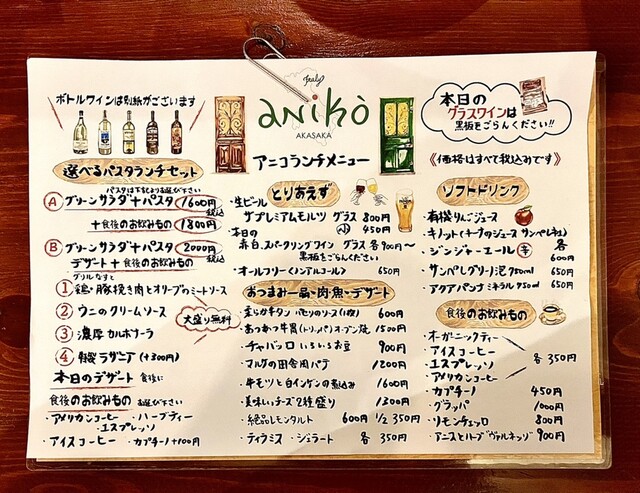 Italy
aniko
AKASAKA
アニコランチメニュー
ボトルワインは別紙がございます
選べるパスタランチセット
パスタは下記よりお選び下さい
Ⓐ グリーンサラダ+パスタ 1600円 税込
+食後のお飲みもの 1800円
Ⓑ グリーンサラダ+パスタ 2000円 税込
デザート+食後のお飲みもの
① グリルなすと
鶏・豚挽き肉とオリーブのミートソース
② ウニのクリームソース
③ 濃厚カルボナーラ
大盛り無料
④ 特製ラザニア (+300円)
本日のデザート 食後に
食後のお飲みもの お選び下さい
・アメリカンコーヒー ・ハーブティー
・エスプレッソ
・アイスコーヒー ・カプチーノ+100円
とりあえず
・生ビール
ザプレミアムモルツ グラス 800円
小 450円
・本日の
赤・白・スパークリングワイン グラス 各900円〜
黒板をごらんください
・オールフリー〈ノンアルコール〉 650円
おつまみ一品・肉・魚・デザート
・柔らか牛タン パセリのソース(1枚) 600円
・あつあつ牛胃(トリッパ)オーブン焼 1500円
・チャバンロ いろいろお豆 900円
・マルケの田舎風パテ 1200円
・牛モツと白インゲンの煮込み 1600円
・美味しいチーズ2種盛り 1300円
・絶品レモンタルト 600円 1/2 350円
・ティラミス ・ジェラート 各 350円
本日の
グラスワインは
黒板をごらんください!!
《価格はすべて税込みです》
ソフトドリンク
・有機りんごジュース
・キノット(サンペレ社)
・ジンジャーエール 辛 各 600円
・サンペレグリノ 泡 750ml 650円
・アクアパンナ ミネラル 750ml 650円
食後のお飲みもの
・オーガニックティー
・アイスコーヒー
・エスプレッソ 各350円
・アメリカンコーヒー
・カプチーノ 450円
・グラッパ 1000円
・リモンチェッロ 800円
・アニスとハーブ 900円